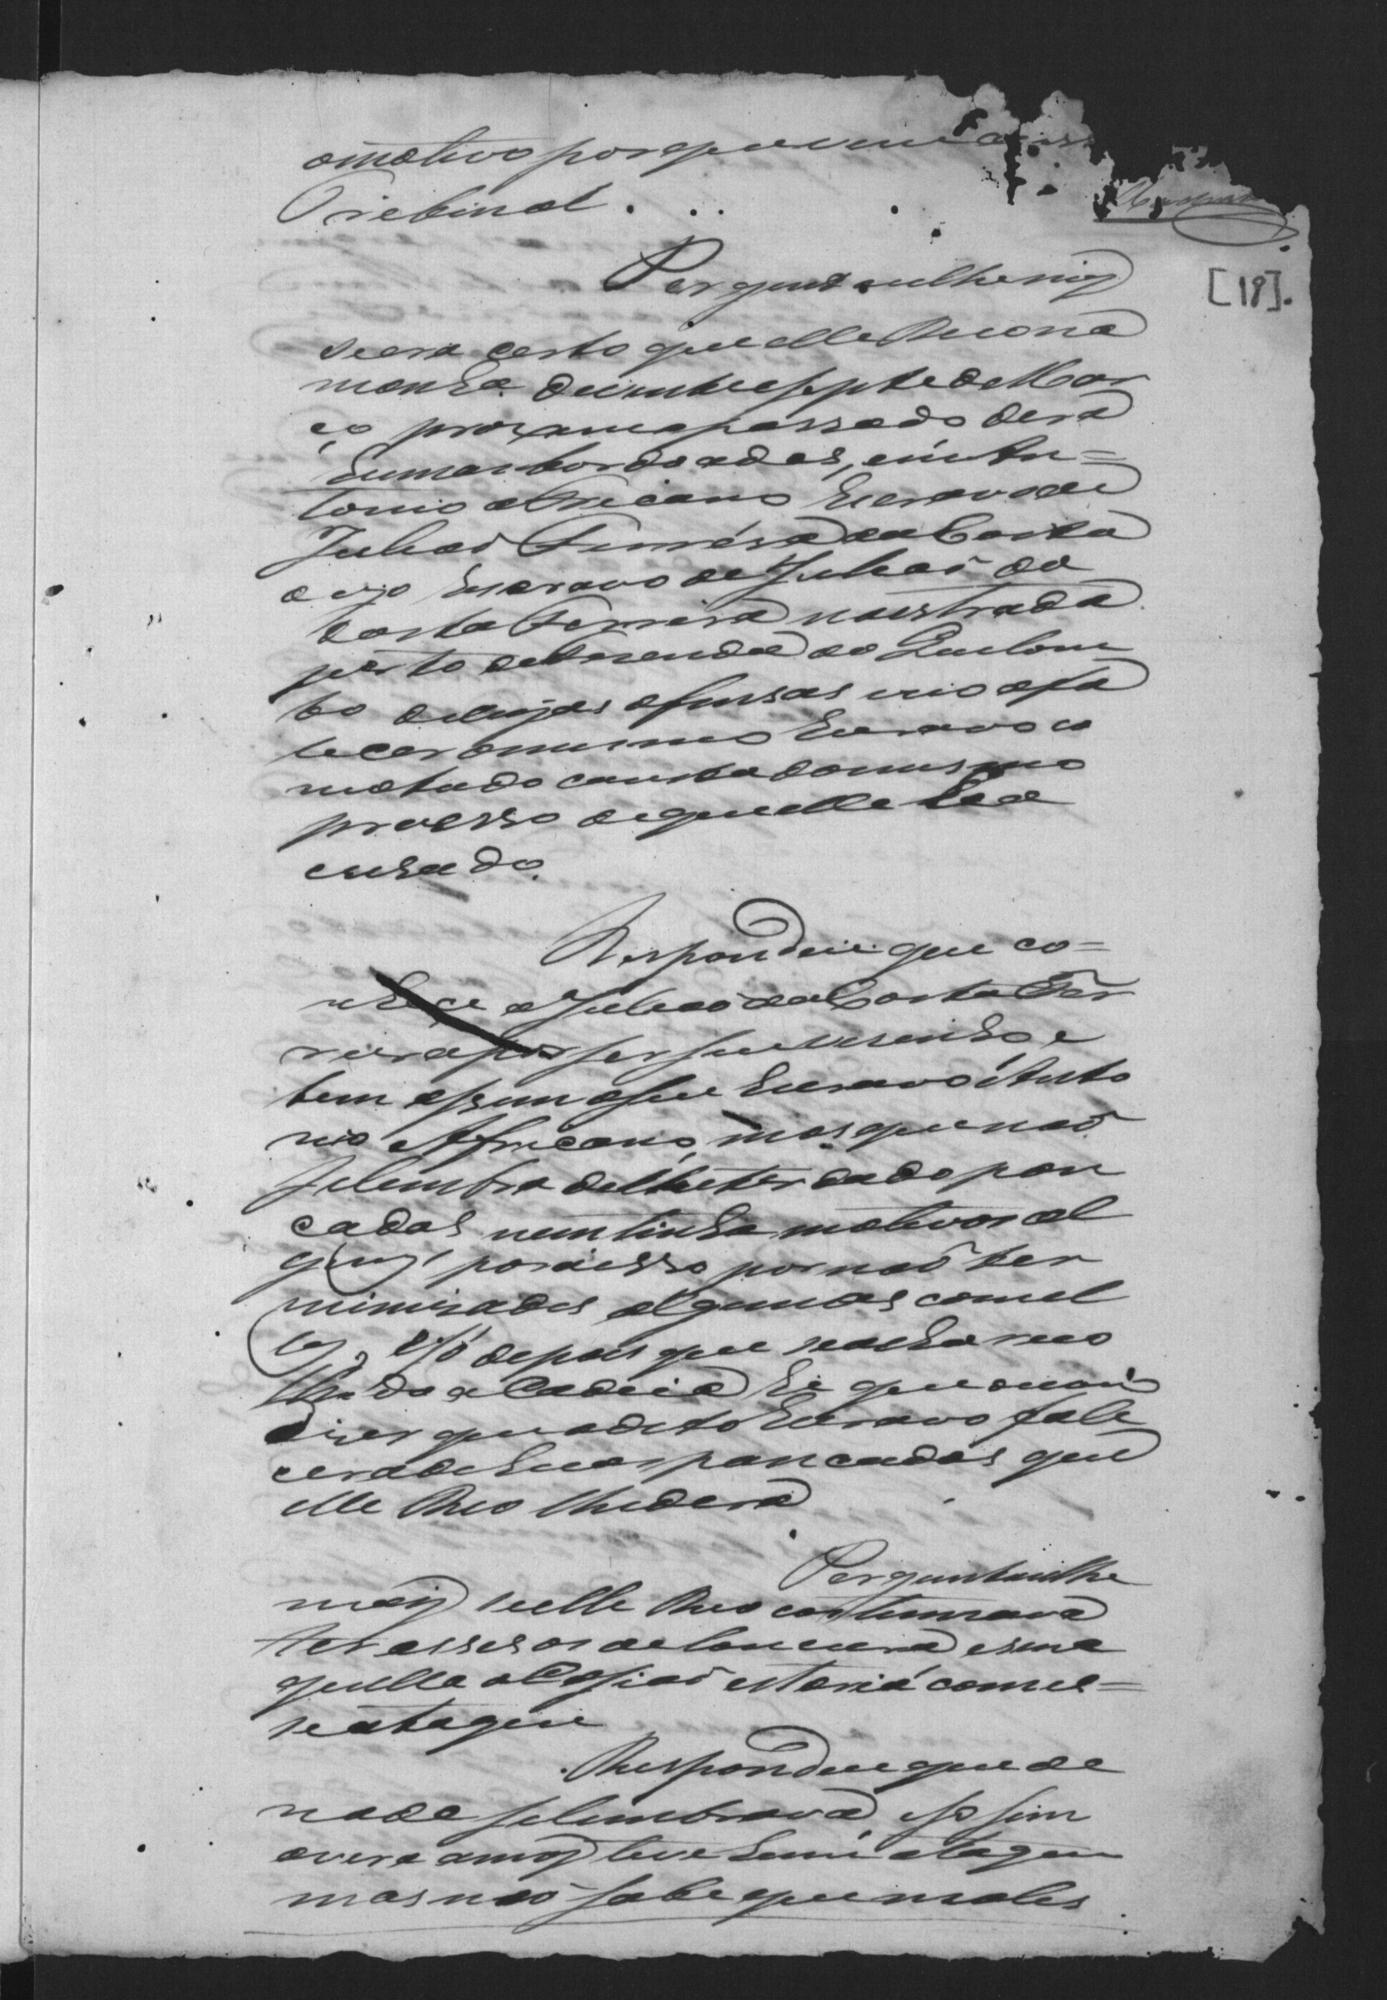 o motivo porque vem a esse
Tribunal.
[18].
Perguntou lhe mais
se era certo que elle Reo na
manhã de vinte e septe de Mar
ço proximo passado dera
humas bordoadas, em An=
tonio Africano Escravo de
Julião Ferreira da Costa
digo Escravo de Julião da
Costa Ferreira na estrada
perto da venda do Quilom
bo de cujas ofensas veio a fa
lecer o mesmo Escravo co
mo tudo consta do mesmo
processo de que elle he a
cusado.
Respondeu que co=
nhece a Julião da Costa Fer
reira por ser seu visinho e
bem assim a seu Escravo Anto
nio Africano, mas que não
se lembra de lhe ter dado pan
cadas nem tinha motivos al
guns para isso por não ter
inimizades algumas com el
les, e só depois que se acha reco
lhido a Cadeia he que ouvio
dizer que o dito Escravo fale
cera de humas pancadas que
elle Reo lhe dera
Perguntou lhe
mais se elle Reo costumava
ter assessos de loucura e se na
quella occasião estaria com es=
se ataque
Respondeu que de
nada se lembrava e assim
avera annos teve hum ataque
mas não sabe que males